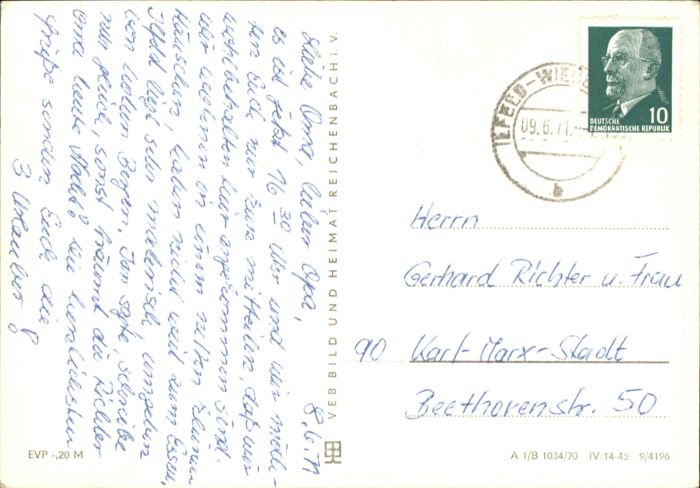 8.6.71
Liebe Oma, lieber Opa,
es ist jetzt 16 30 Uhr und wir möch-
ten Euch nur kurz mitteilen, daß wir
wohlbehalten hier angekommen sind.
Wir wohnen in einem netten kleinen
Häuschen, haben nicht weit zum Essen,
Ilfeld liegt sehr malerisch umgeben
von hohen Bergen. Jan sagte, schreibe
nun gleich, sonst träumt die Richter
Oma heute Nacht? Die herzlichsten
Grüße senden Euch die
3 Urlauber
VEB BILD UND HEIMAT REICHENBACH i. V.
EVP -,20 M
ILFELD-WIE
09.6.71
b
10
DEUTSCHE
DEMOKRATISCHE REPUBLIK
Herrn
Gerhard Richter u. Frau
90 Karl-Marx-Stadt
Beethovenstr. 50
A 1/B 1034/70 IV-14-45 9/4196